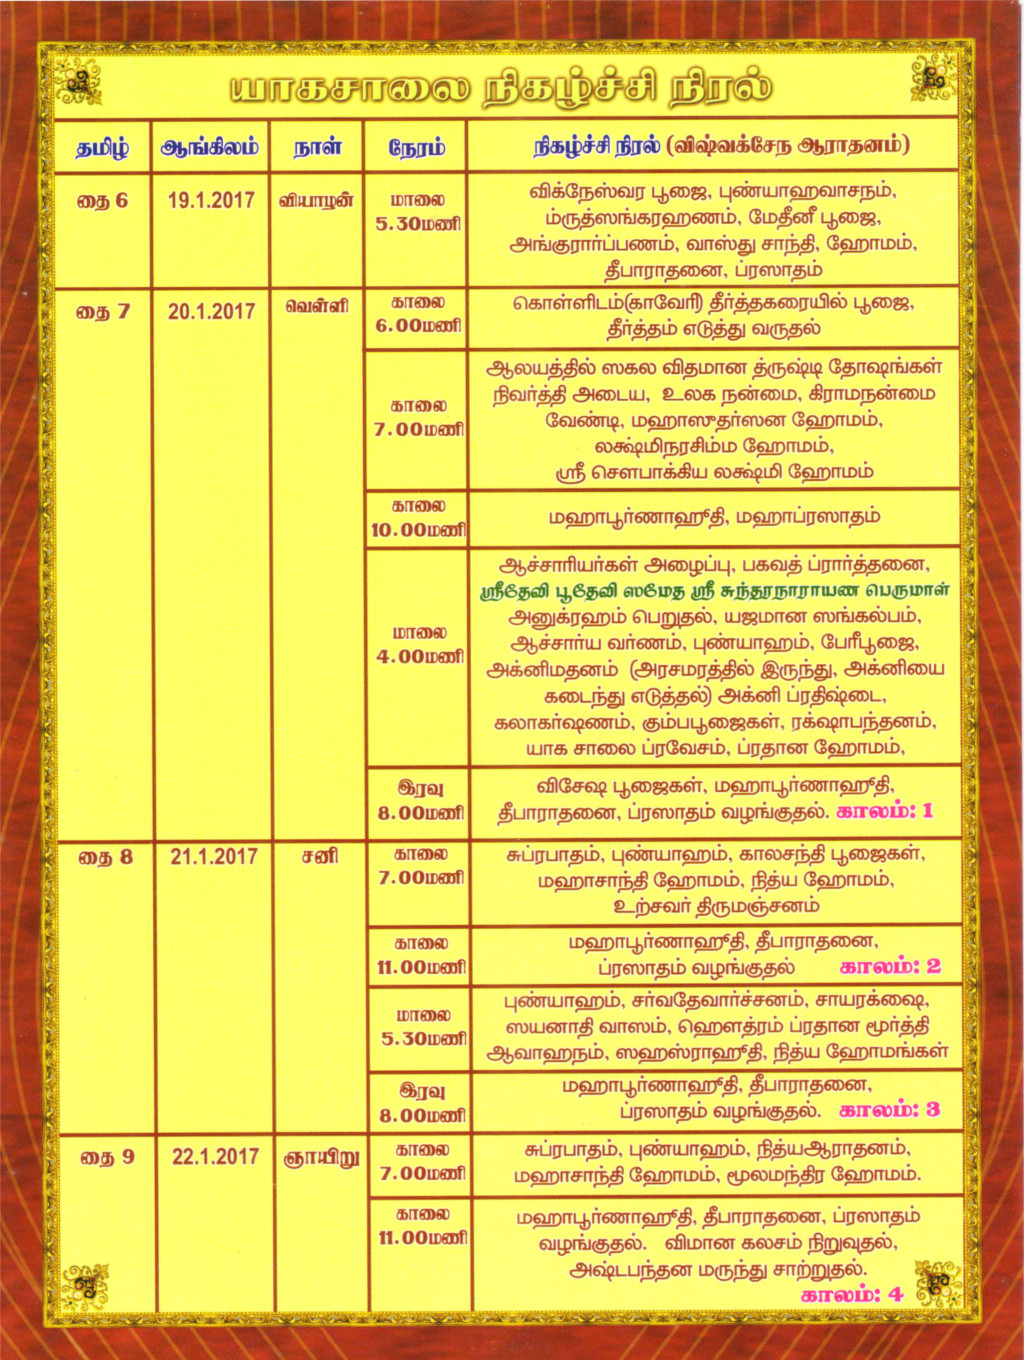 யாகசாலை நிகழ்ச்சி நிரல்
தமிழ் ஆங்கிலம் நாள் நேரம் நிகழ்ச்சி நிரல் (விஷ்வக்சேந ஆராதனம்)
தை 6 19.1.2017 வியாழன் மாலை 5.30மணி
விக்நேஸ்வர பூஜை, புண்யாஹவாசநம்,
ம்ருத்ஸங்கரஹணம், மேதீனீ பூஜை,
அங்குரார்ப்பணம், வாஸ்து சாந்தி, ஹோமம்,
தீபாராதனை, ப்ரஸாதம்
தை 7 20.1.2017 வெள்ளி காலை 6.00மணி
கொள்ளிடம்(காவேரி) தீர்த்தகரையில் பூஜை,
தீர்த்தம் எடுத்து வருதல்
காலை 7.00மணி
ஆலயத்தில் ஸகல விதமான த்ருஷ்டி தோஷங்கள்
நிவர்த்தி அடைய, உலக நன்மை, கிராமநன்மை
வேண்டி, மஹாஸுதர்ஸன ஹோமம்,
லக்ஷ்மிநரசிம்ம ஹோமம்,
ஸ்ரீ சௌபாக்கிய லக்ஷ்மி ஹோமம்
காலை 10.00மணி
மஹாபூர்ணாஹூதி, மஹாப்ரஸாதம்
மாலை 4.00மணி
ஆச்சாரியர்கள் அழைப்பு, பகவத் ப்ரார்த்தனை,
ஸ்ரீதேவி பூதேவி ஸமேத ஸ்ரீ சுந்தரநாராயண பெருமாள்
அனுக்ரஹம் பெறுதல், யஜமான ஸங்கல்பம்,
ஆச்சார்ய வர்ணம், புண்யாஹம், பேரீபூஜை,
அக்னிமதனம் (அரசமரத்தில் இருந்து, அக்னியை
கடைந்து எடுத்தல்) அக்னி ப்ரதிஷ்டை,
கலாகர்ஷணம், கும்பபூஜைகள், ரக்ஷாபந்தனம்,
யாக சாலை ப்ரவேசம், ப்ரதான ஹோமம்,
இரவு 8.00மணி
விசேஷ பூஜைகள், மஹாபூர்ணாஹூதி,
தீபாராதனை, ப்ரஸாதம் வழங்குதல். காலம்: 1
தை 8 21.1.2017 சனி காலை 7.00மணி
சுப்ரபாதம், புண்யாஹம், காலசந்தி பூஜைகள்,
மஹாசாந்தி ஹோமம், நித்ய ஹோமம்,
உற்சவர் திருமஞ்சனம்
காலை 11.00மணி
மஹாபூர்ணாஹூதி, தீபாராதனை,
ப்ரஸாதம் வழங்குதல் காலம்: 2
மாலை 5.30மணி
புண்யாஹம், சர்வதேவார்ச்சனம், சாயரக்ஷை,
ஸயனாதி வாஸம், ஹௌத்ரம் ப்ரதான மூர்த்தி
ஆவாஹநம், ஸஹஸ்ராஹூதி, நித்ய ஹோமங்கள்
இரவு 8.00மணி
மஹாபூர்ணாஹூதி, தீபாராதனை,
ப்ரஸாதம் வழங்குதல். காலம்: 3
தை 9 22.1.2017 ஞாயிறு காலை 7.00மணி
சுப்ரபாதம், புண்யாஹம், நித்யஆராதனம்,
மஹாசாந்தி ஹோமம், மூலமந்திர ஹோமம்.
காலை 11.00மணி
மஹாபூர்ணாஹூதி, தீபாராதனை, ப்ரஸாதம்
வழங்குதல். விமான கலசம் நிறுவுதல்,
அஷ்டபந்தன மருந்து சாற்றுதல்.
காலம்: 4